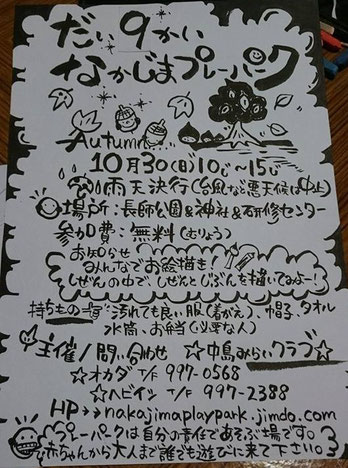 だい9かい
なかじまプレーパーク
Autumn
10月30(日)10じ〜15じ
雨天決行(台風など悪天候は中止)
場所:長師公園&神社&研修センター
参加費:無料(むりょう)
お知らせ
みんなでお絵描き!
しぜんの中で、しぜんとじぶんを描いてみよー!
持ちもの 汚れても良い服(着がえ)、帽子、タオル
水筒、お弁当(必要な人)
主催/問い合わせ ☆中島みらいクラブ☆
☆オカダ T/F 997-0568
☆ハビイツ T/F 997-2388
HP→→nakajimaplaypark.jimdo.com
プレーパークは自分の責任であそぶ場です。
赤ちゃんから大人まで誰でも遊びに来て下さい。